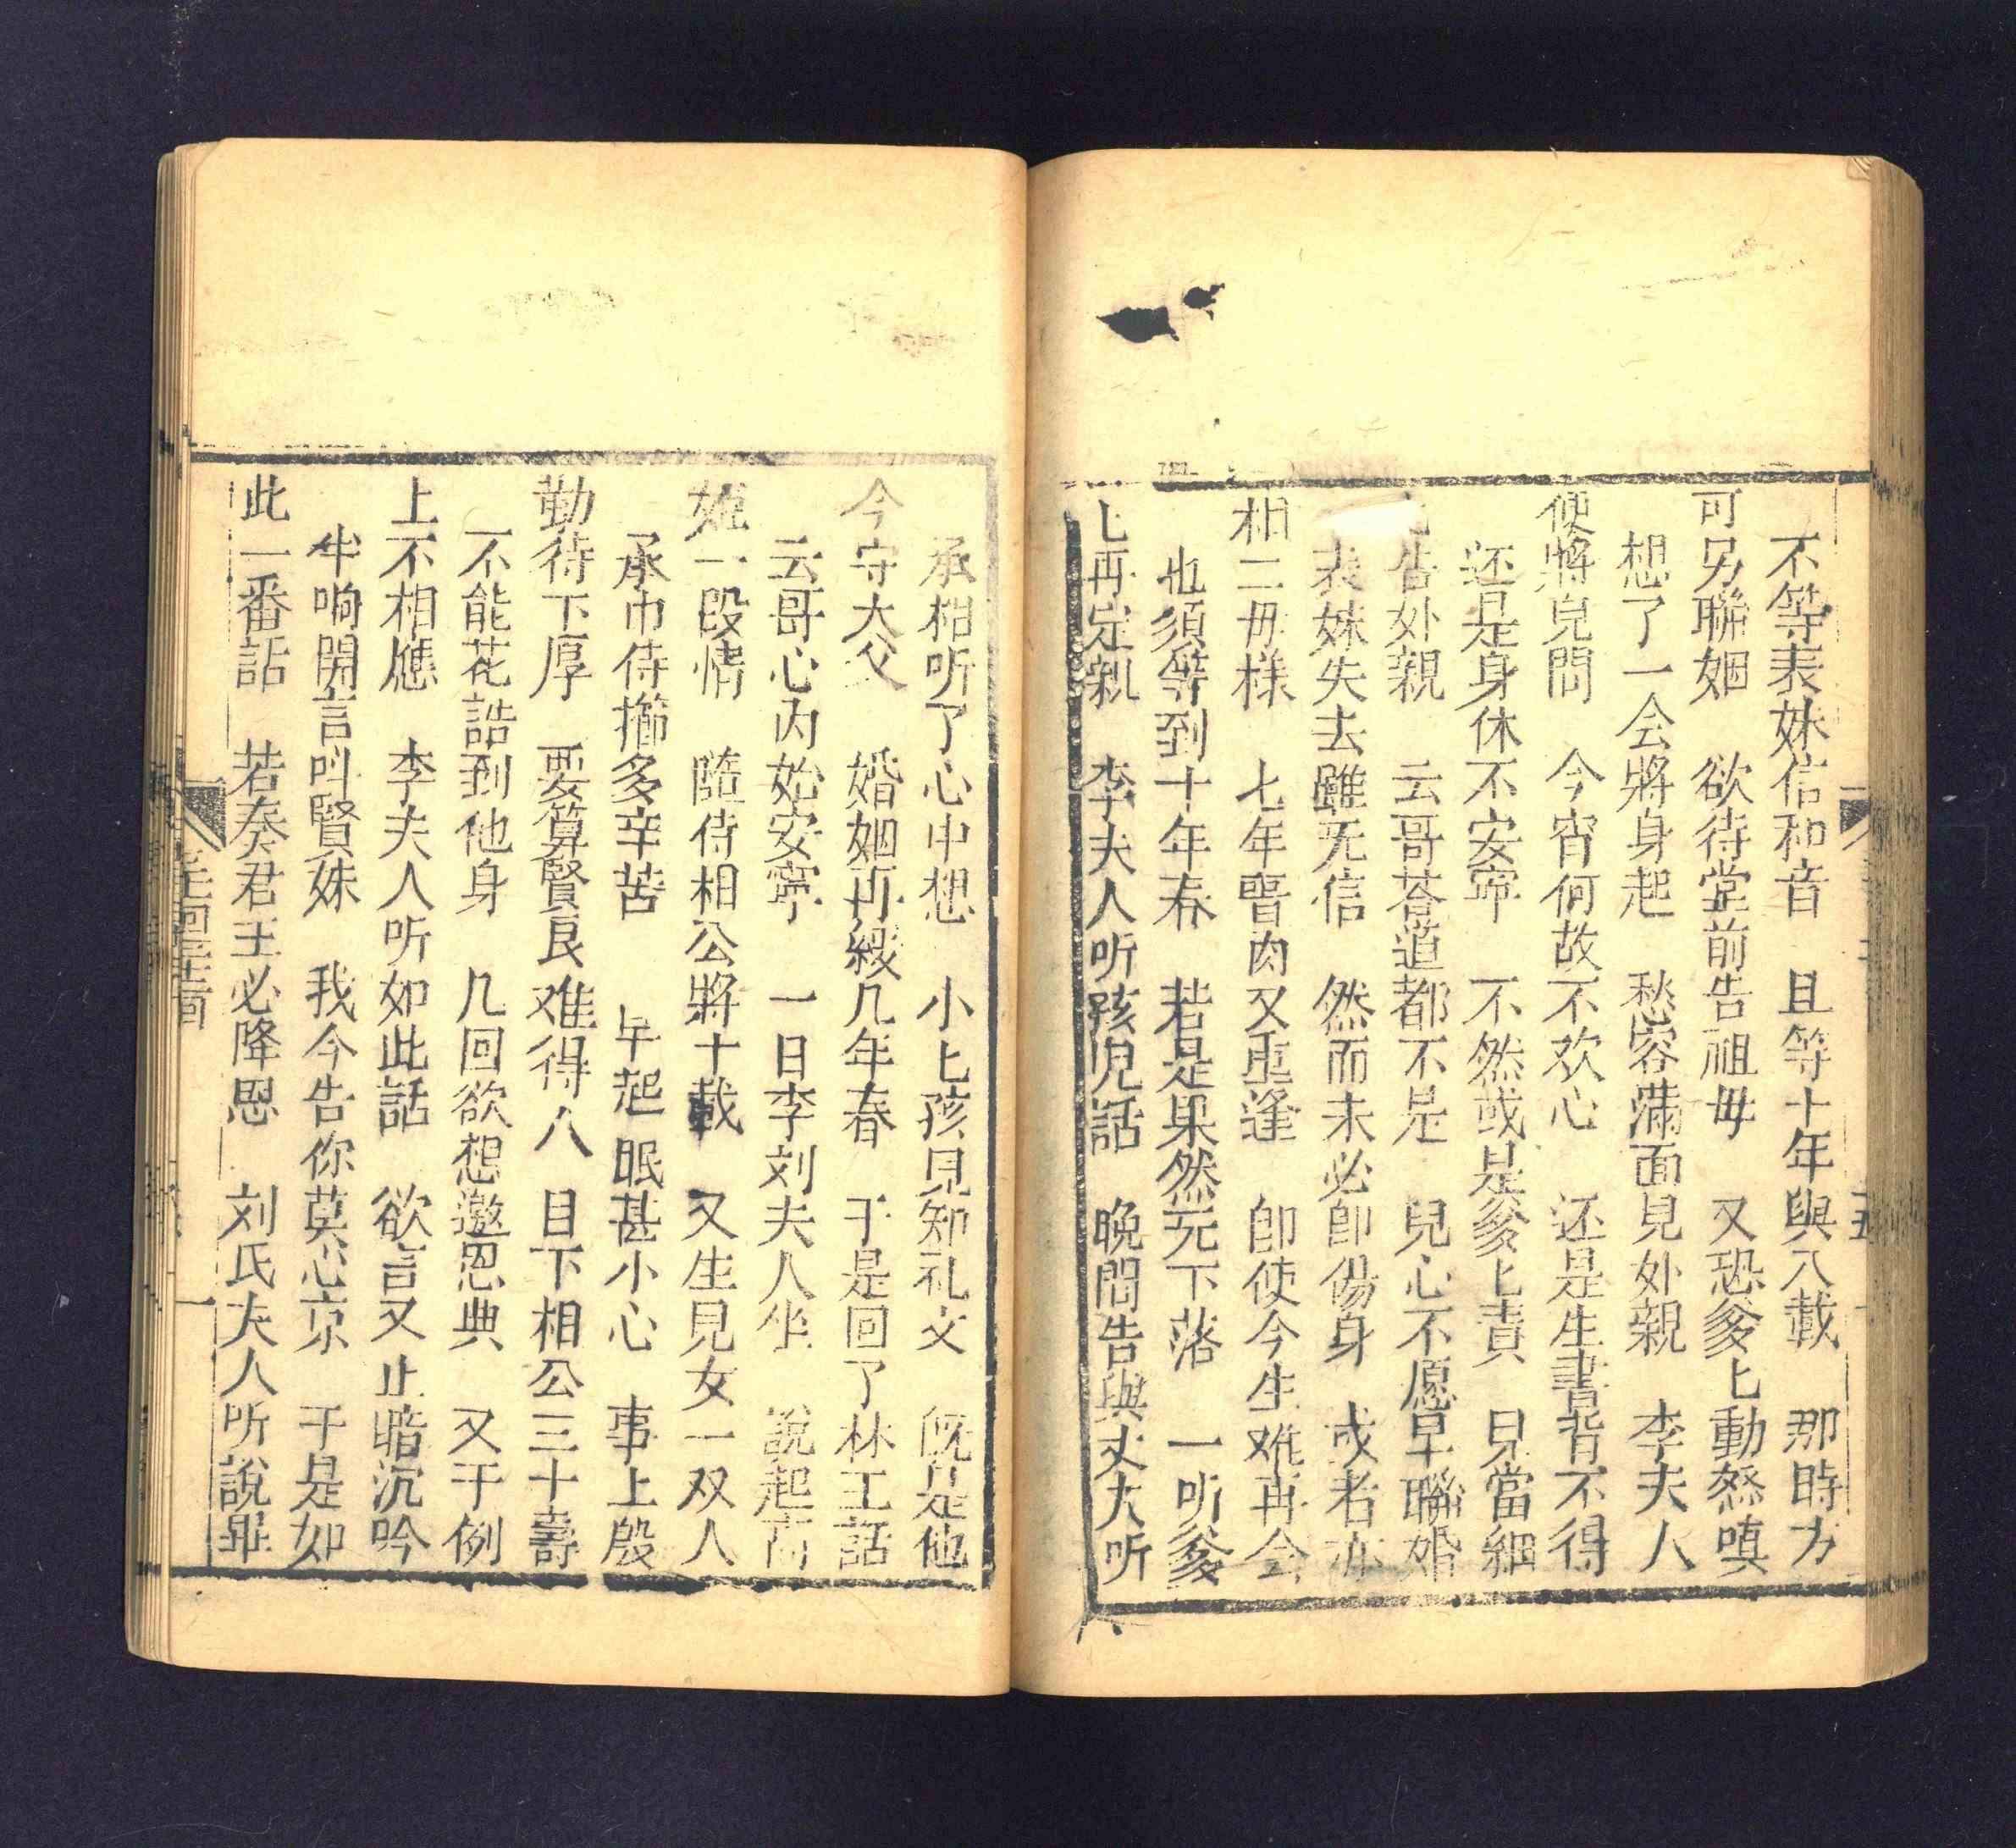 不等表妹信和音　且等十年與八載　那時方
可另聯姻　欲待堂前告祖毋　又恐爹匕動怒嗔
想了一会將身起　愁容满面見外親　李夫人
便將兒問　今宵何故不欢心　还是生書背不得
还是身休不安寧　不然或是爹匕責　見當細
告外親　云哥荅道都不是　兒心不愿早聯婚
表妹失去雖无信　然而未必卽傷身　或者亦
相二毋樣　七年骨肉又重逢　卽使今生难再会
也須等到十年春　若是果然无下落　一听爹
匕再定親　李夫人听孩児話　晚間告與丈夫听
承相听了心中想　小匕孩兒知礼文　既是他
今守大义　婚姻再緩几年春　于是回了林王話
云哥心内始安寧　一日李刘夫人坐　說起
姬一段情　隨侍相公將十載　又生児女一双人
承巾侍櫛多辛苦　早起眠甚小心　事上殷
勤待下厚　要算賢良难得人　目下相公三十壽
不能花誥到他身　几回欲想邀恩典　又于例
上不相應　李夫人听如此話　欲言又止暗沉吟
半响開言叫賢妹　我今告你莫心京　于是如
此一番話　若奏君王必降恩　刘氏夫人听說罪